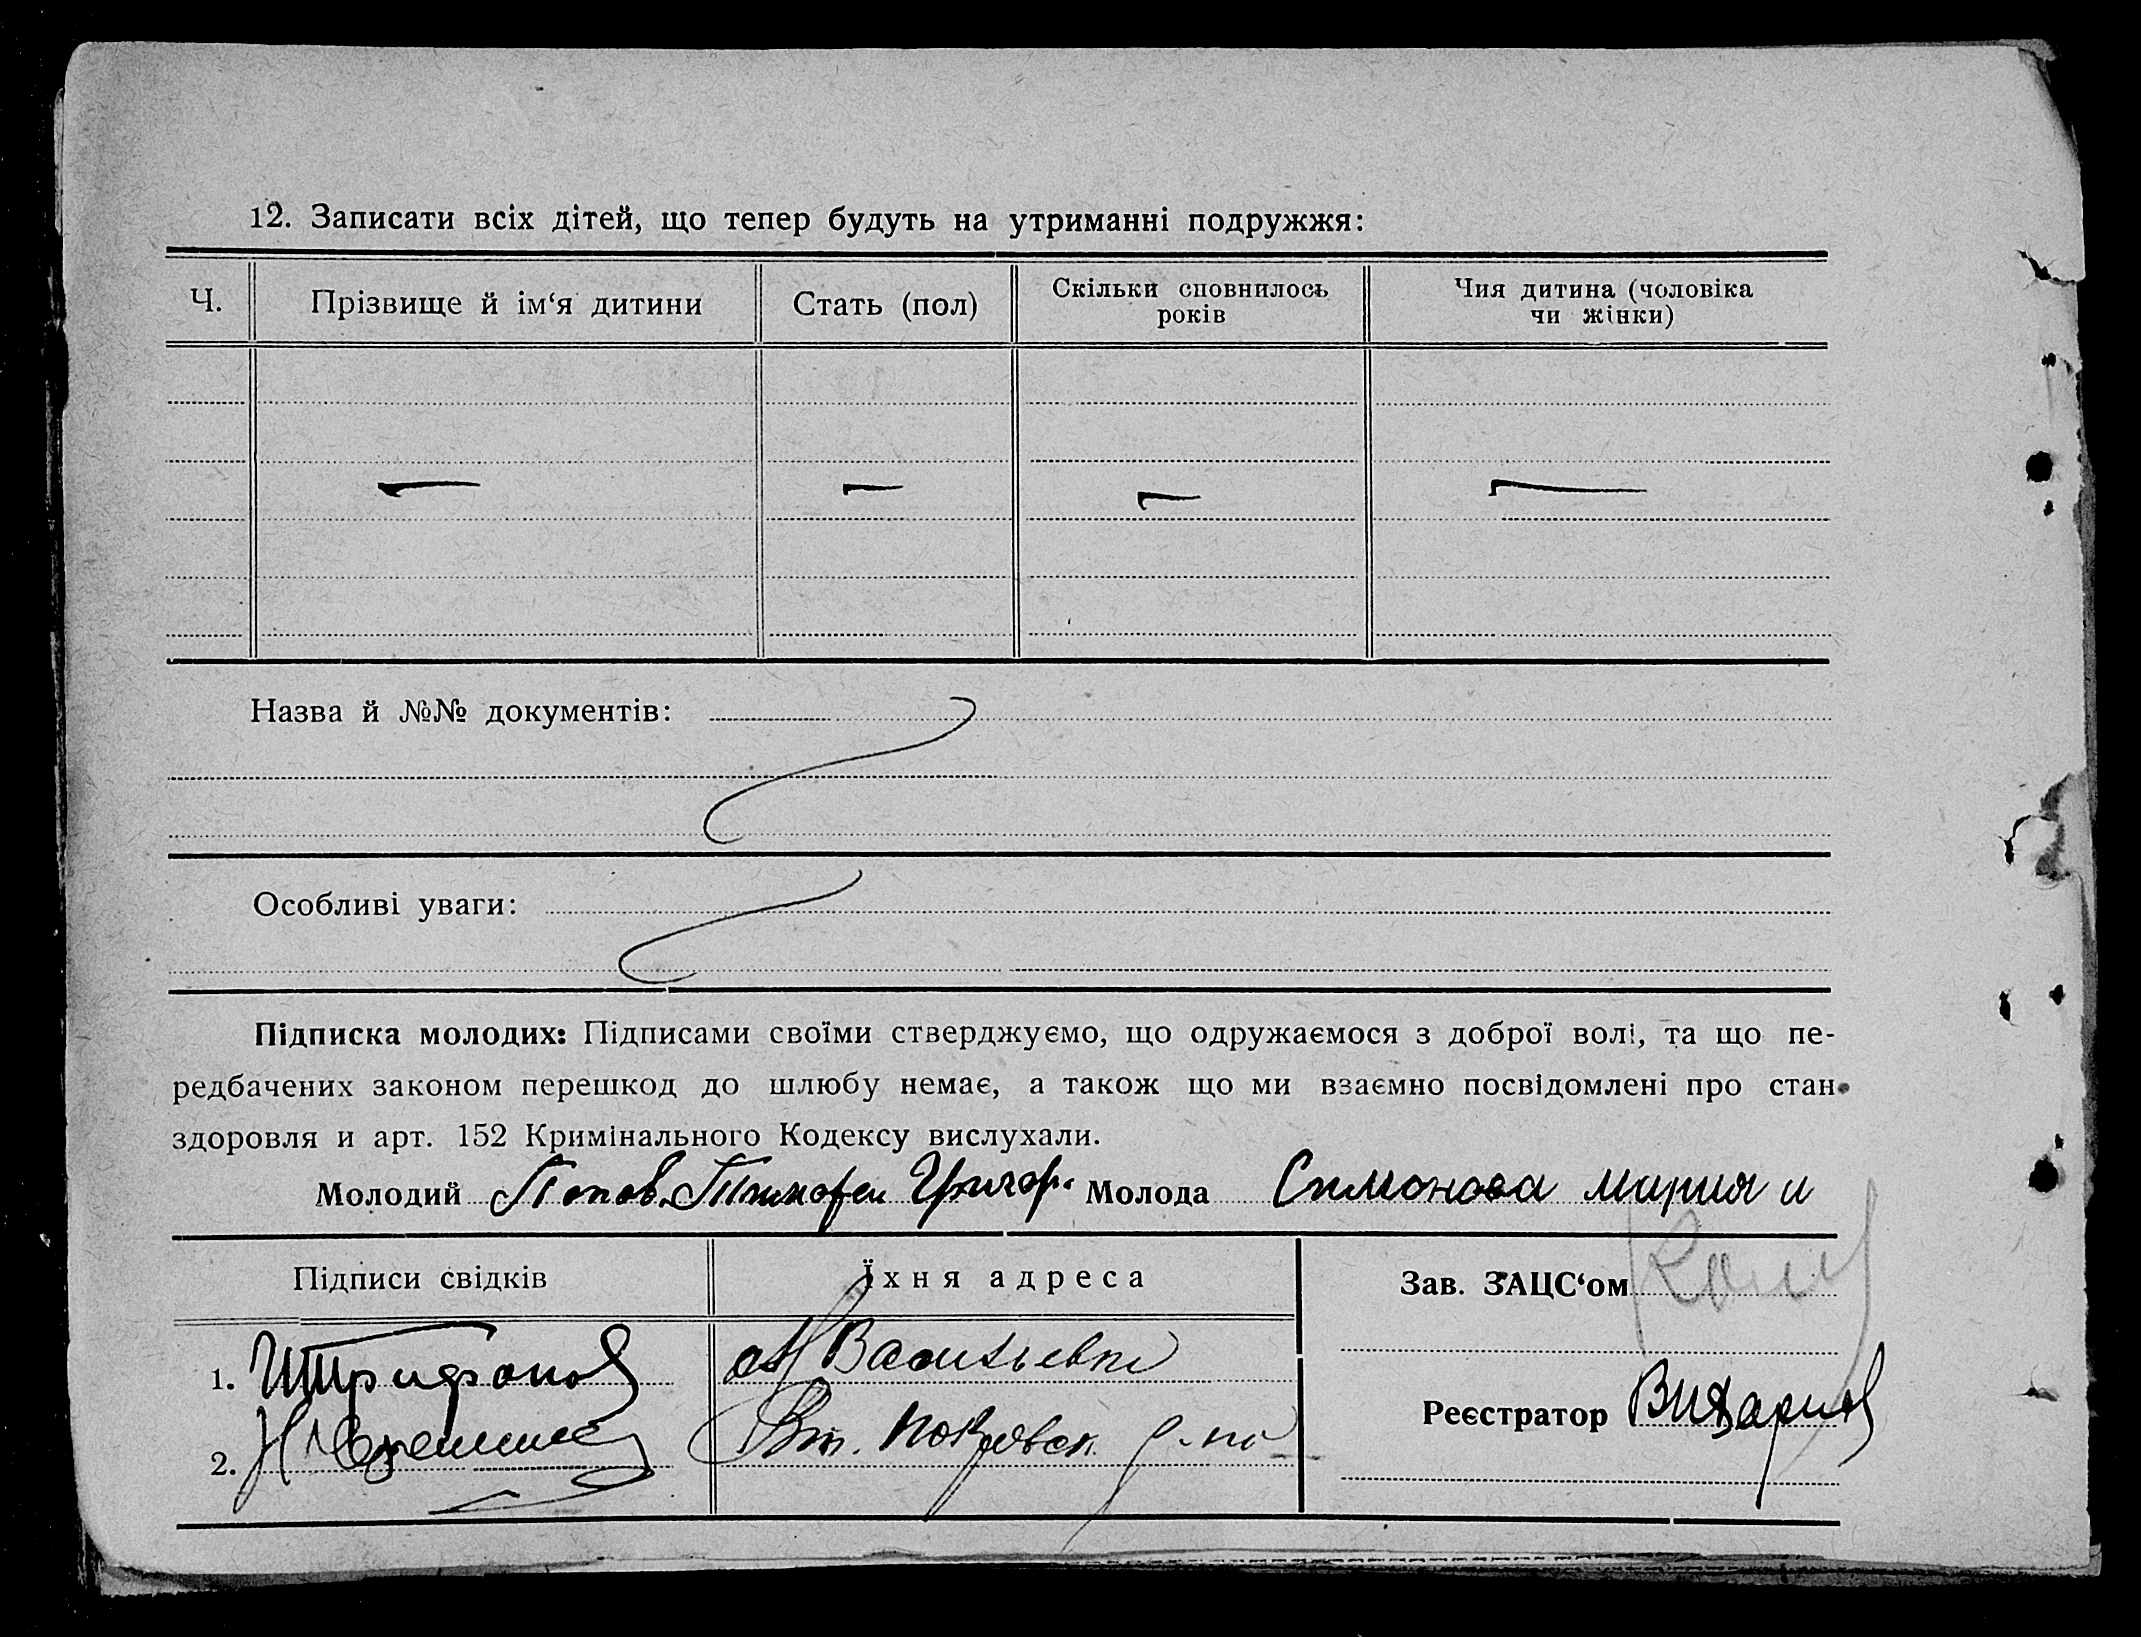 12. Записати всіх дітей, що тепер будуть на утриманні подружжя:
Ч. Прізвище й ім‘я дитини Стать (пол) Скільки сповнилось років Чия дитина (чоловіка чи жінки)
Назва й №№ документів:
Особливі уваги:
Підписка молодих: Підписами своїми стверджуємо, що одружаємося з доброї волі, та що пе-
редбачених законом перешкод до шлюбу немає, а також що ми взаємно посвідомлені про стан
здоровля и арт. 152 Кримінального Кодексу вислухали.
Молодий Попов Тимофеи Григор. Молода Симонова мария и
Підписи свідків Їхня адреса Зав. ЗАЦС‘ом
1. Трифонов Васильевки
2. Покровск. р-на Реєстратор